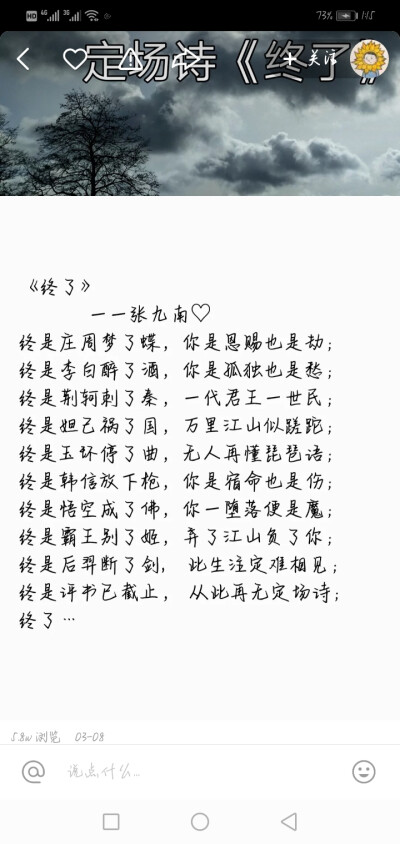 HD 4G 3G 73% 1:15
定场诗《终了》
+ 关注
《终了》
一一张九南♡
终是庄周梦了蝶，你是恩赐也是劫；
终是李白醉了酒，你是孤独也是愁；
终是荆轲刺了秦，一代君王一世民；
终是妲己祸了国，万里江山似蹉跎；
终是玉环停了曲，无人再懂琵琶语；
终是韩信放下枪，你是宿命也是伤；
终是悟空成了佛，你一堕落便是魔；
终是霸王别了姬，弃了江山负了你；
终是后羿断了剑，此生注定难相见；
终是评书已截止，从此再无定场诗；
终了…
5.8w 浏览 03-08
@ 说点什么...